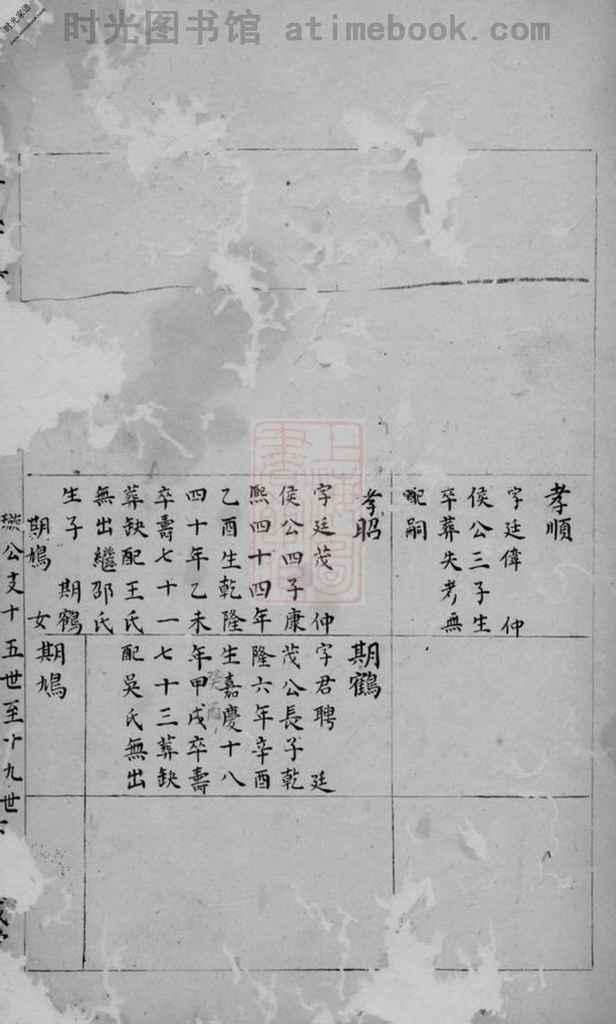 时光图书馆 atimebook.com
时光家谱
孝順
字廷偉 仲
侯公三子生
卒葬失考無
配嗣
孝昭
字廷茂 仲
侯公四子康
熙四十四年
乙酉生乾隆
四十年乙未
卒壽七十一
葬缺配王氏
無出繼邵氏
生子 期鶴
期鳩 女
期鶴
字君聘 廷
茂公長子乾
隆六年辛酉
生嘉慶十八
年甲戌卒壽
七十三葬缺
配吳氏無出
期鳩
公支十五世至十九世